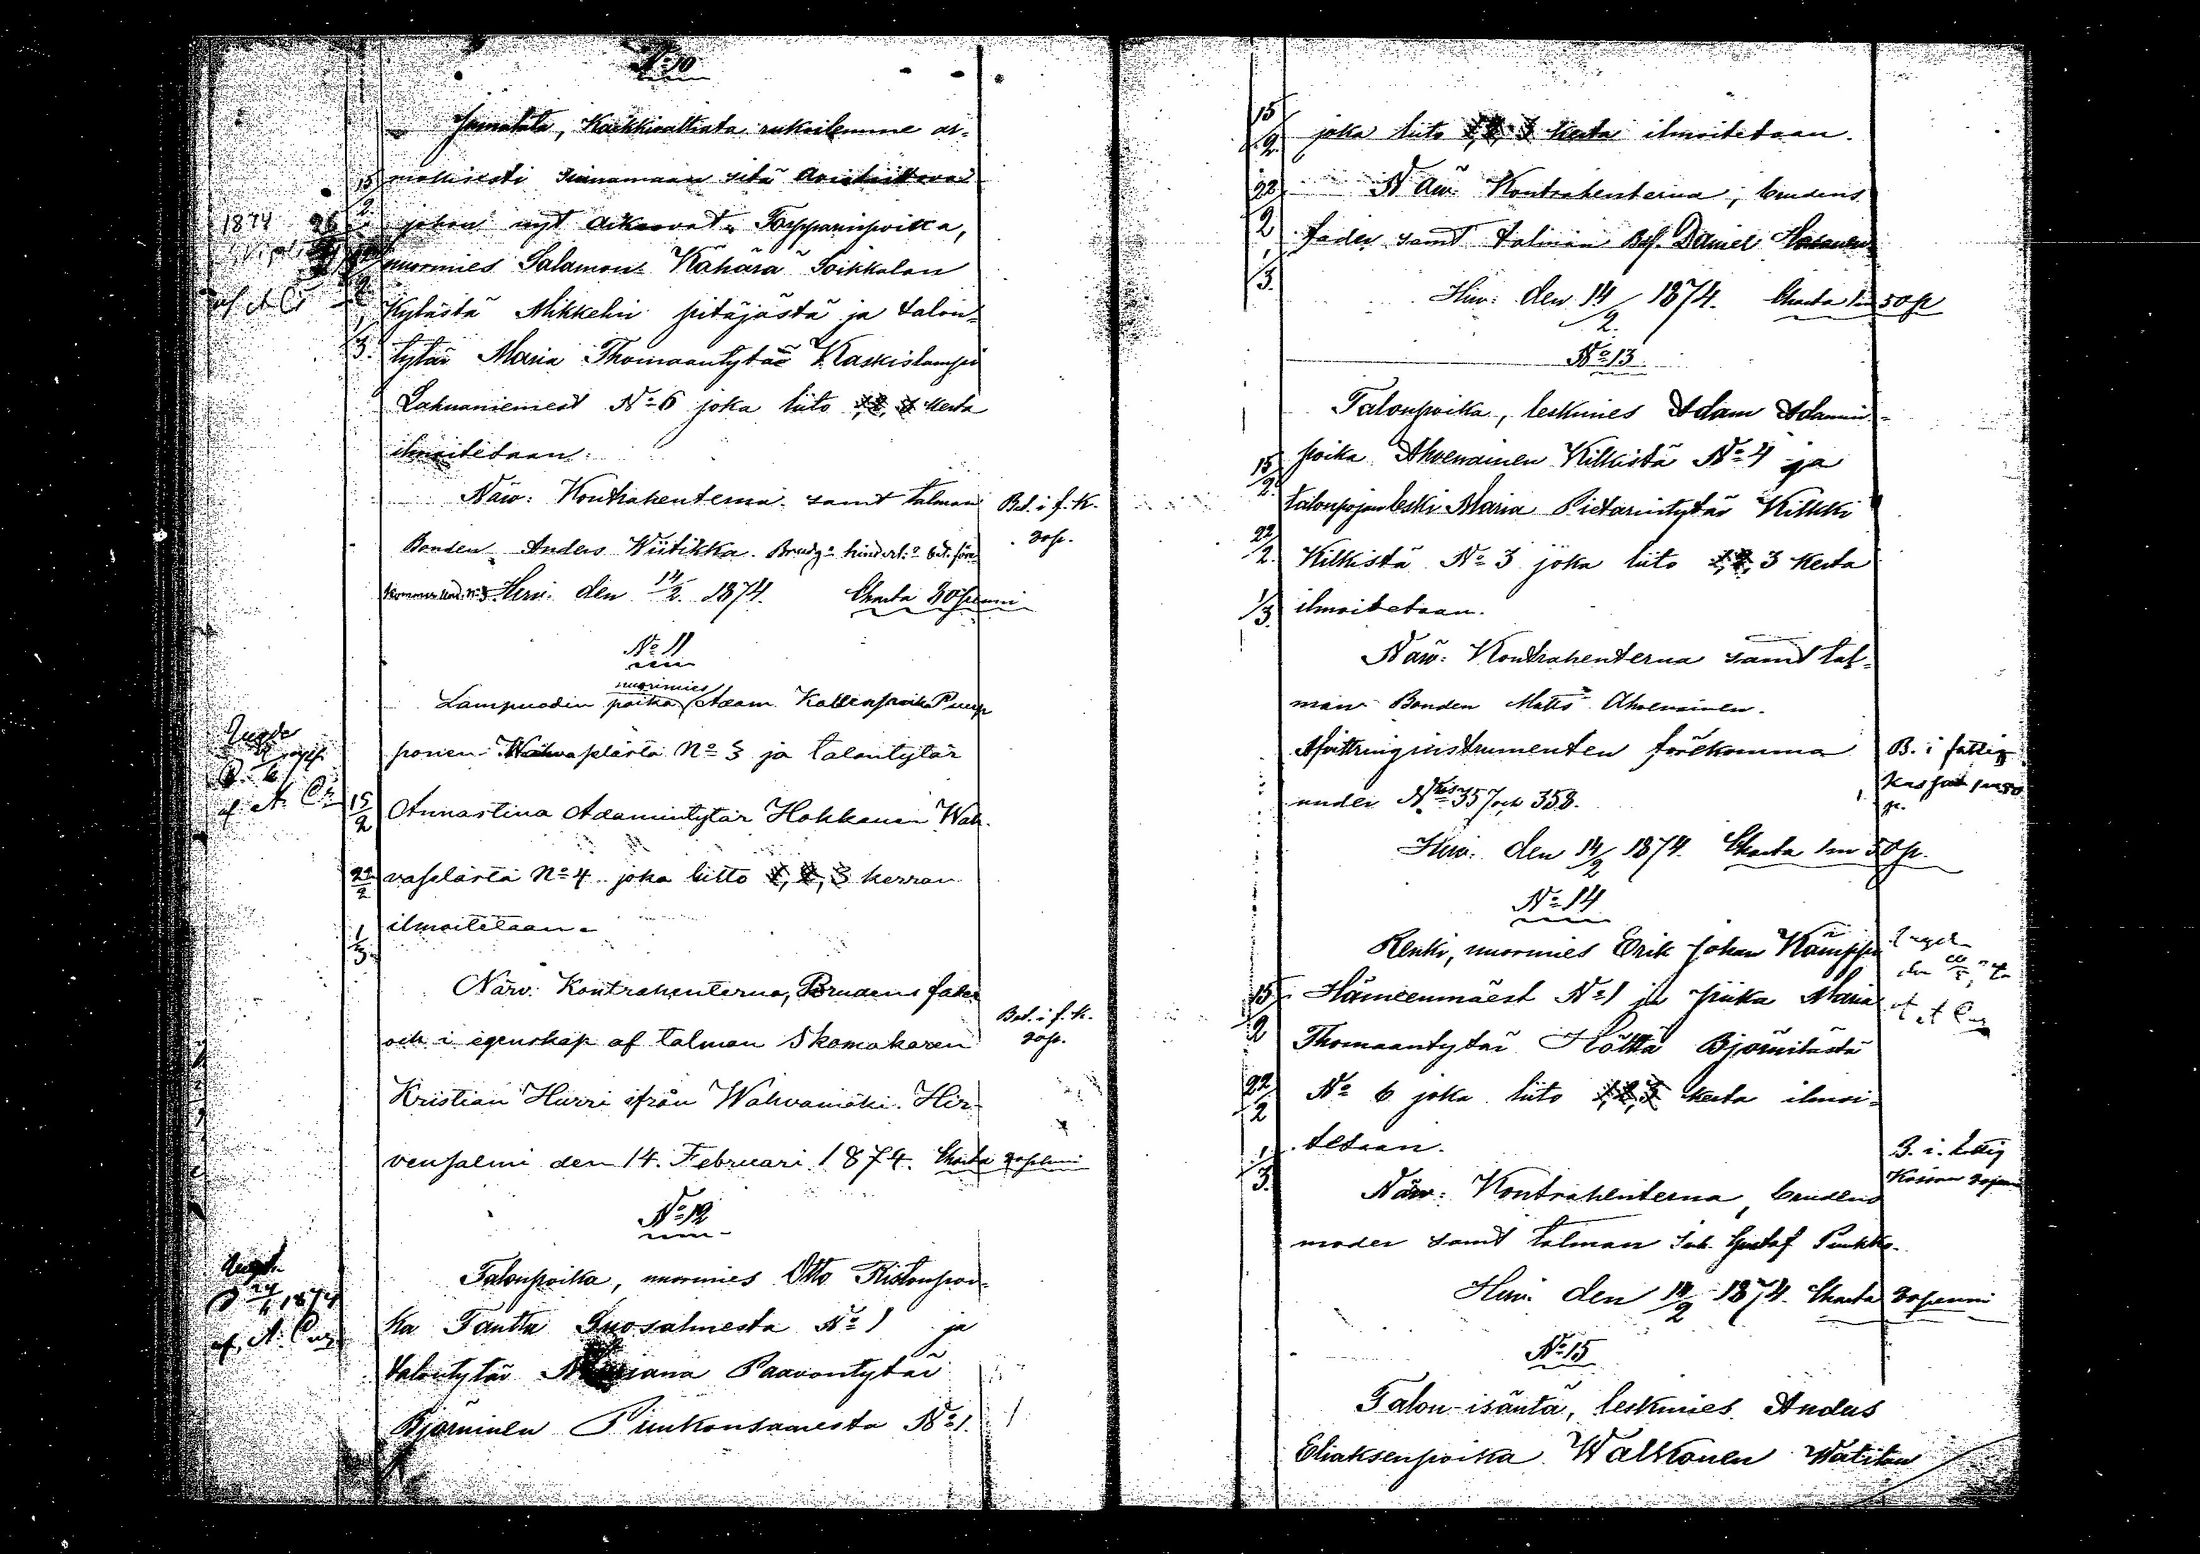 No 10
Jumalata, Kaikkivaltiata rukoilemme ar-
mollisesti siunamaan sitä avioliittoa
johon nyt aikoovat. Torpparinpoika,
nuorimies Salamon Kähärä Soikkalan
Kylästä Mikkelin pitäjästä ja talon-
tytär Maria Thomaantytär Kaskislampi
Lahnaniemest No 6 joka liito 1, 2, 3 kerta
ilmoitetaan.
Näw: Kontrahenterna samt talman
Bonden Anders Wiitikka. Brudg:s hinderl:s bet. före-
kommer und. No 3 Hirv. den 14/2 1874. Charta 30 penni
Bet. i f. k.
20 p.
1874 26
af A. C.
15/2
1/3.
No 11
Lampuodin poika nuorimies Adam Kallenpoika Pump
ponen Wahvaplästä No 3 ja talontytär
Annastina Adamintytär Hokkanen Wah-
vaplästä No 4 joka liitto 1, 2, 3 kerran
ilmoitetaan.
Närv. Kontrahenterna, Brudens fader
och i egenskap af talman Skomakaren
Kristian Hurri ifrån Wahvamäki. Hir-
vensalmi den 14. Februari 1874. Charta 20 penni
Bet. i f. k.
20 p.
af A. C
15/2
22/2
1/3
No 12
Talonpoika, nuorimies Otto Ristonpoi-
ka Tantta Suosalmesta No 1 ja
talontytär Mariana Paavontytär
Björninen Punkonsaaresta No 1.
1874
af A. Cuz
15/2 joka liito 1, 2, 3 kerta ilmoitetaan.
22/2 Näw: Kontrahenterna, brudens
fader samt talman Bof. Daniel Hasanen
1/3.
Hirv: den 14/2 1874. Charta 1 m 50 p
No 13.
Talonpoika, leskmies Adam Adamin-
poika Ahvenainen Kilkistä No 4 ja
talonpojanleski Maria Pietarintytär Kilkki
Kilkistä No 3 joka liito 1, 2, 3 kerta
ilmoitetaan.
15/2.
22/2.
1/3
Näw: Kontrahenterna samt tal-
man Bonden Matts Ahvenainen.
Afvittringsinstrumenten förekomma
under No 357 och 358.
Hirv. den 14/2 1874. Charta 1 m 50 p.
B. i fattig
No 14
Renki, nuorimies Erik Johan Kämppi
Hämeenmäest No 1 ja piika Maria
Thomaantytär Höltta Björnilästä
No 6 joka liito 1, 2, 3 kerta ilmoi-
tetaan.
15/2
22/2
1/3.
Näw: Kontrahenterna, brudens
moder samt talman Joh. Gustaf Punkka.
Hirv. den 14/2 1874. Charta 20 penni
B. i. fattig
Kassan 20 penni
No 15
Talon-isäntä, leskmies Anders
Eliaksenpoika Walkonen Watilan